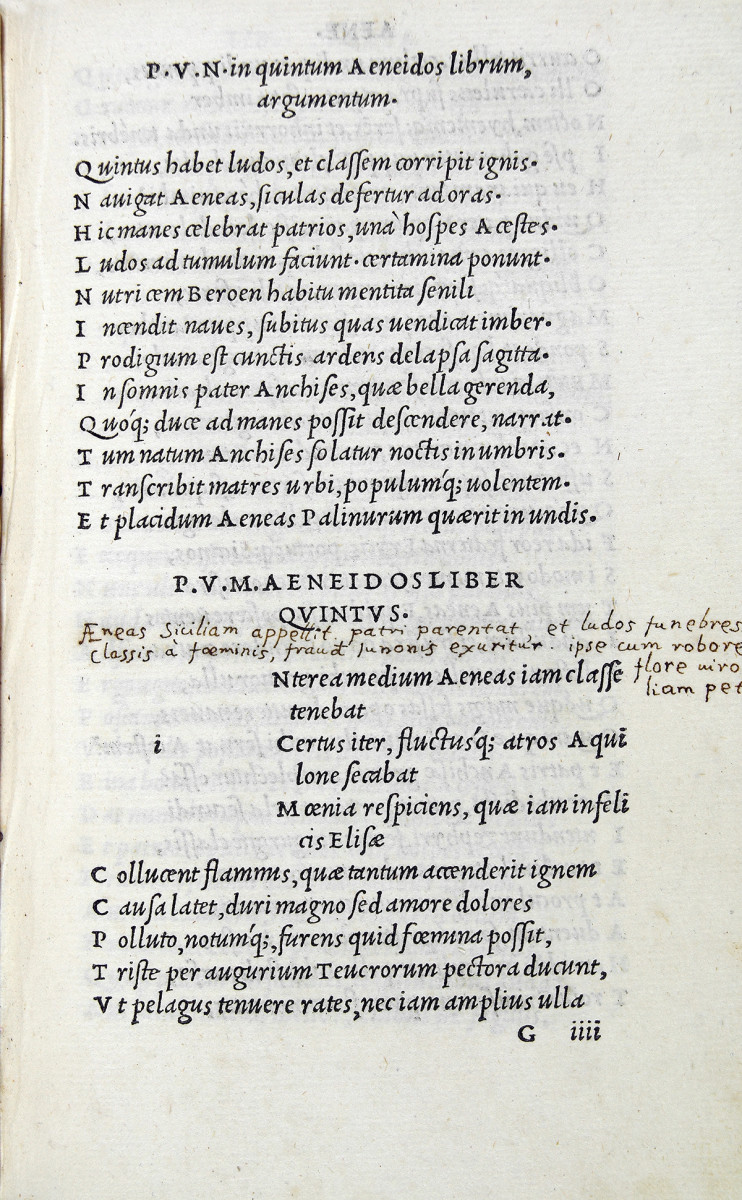 P.V.N. in quintum Aeneidos librum,
argumentum.
Quintus habet ludos, et classem corripit ignis.
Nauigat Aeneas, siculas defertur ad oras.
Hic manes celebrat patrios, unà hospes Acestes.
Ludos ad tumulum faciunt. certamina ponunt.
Nutricem Beroen habitu mentita senili
Incendit naues, subitus quas uendicat imber.
Prodigium est cunctis ardens delapsa sagitta.
In somnis pater Anchises, quæ bella gerenda,
Quóq; duce ad manes possit descendere, narrat.
Tum natum Anchises solatur noctis in umbris.
Transcribit matres urbi, populumq́; uolentem.
Et placidum Aeneas Palinurum quærit in undis.
P.V.M. AENEIDOS LIBER
QVINTVS.
Æneas Siciliam appellit patri parentat, et ludos funebres
Classis à fœminis, fraude Iunonis exuritur. ipse cum robore
flore uiro
liam pet
Nterea medium Aeneas iam classe
tenebat
i Certus iter, fluctusq́; atros Aqui
lone secabat
Mœnia respiciens, quæ iam infeli
cis Elisæ
Collucent flammis, quæ tantum accenderit ignem
Causa latet, duri magno sed amore dolores
Polluto, notumq́;, furens quid fœmina possit,
Triste per augurium Teucrorum pectora ducunt,
Vt pelagus tenuere rates, nec iam amplius ulla
G iiii